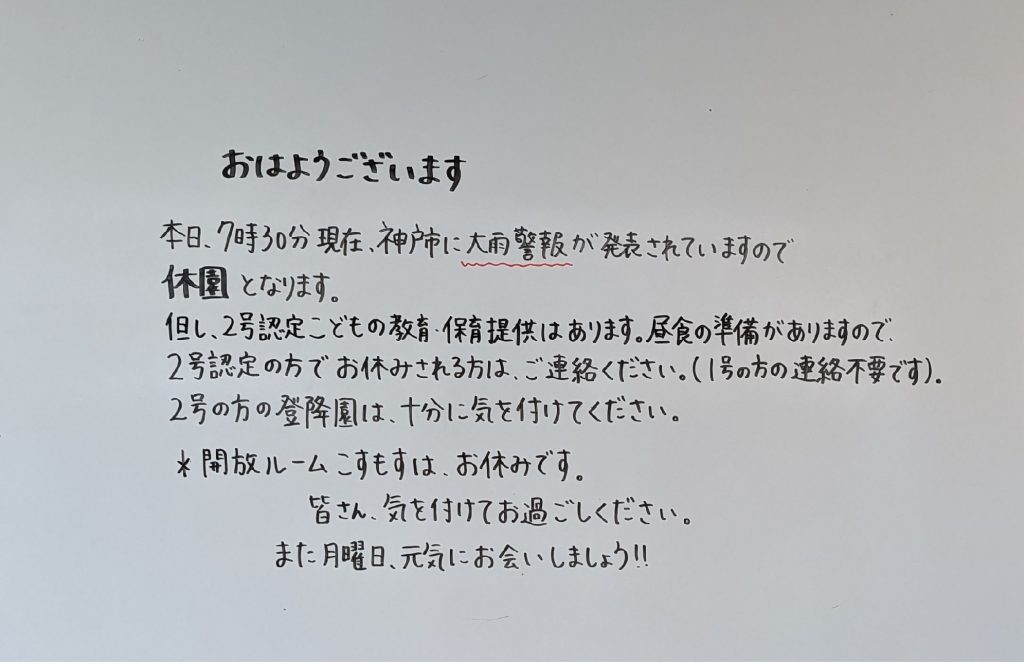 おはようございます
本日、7時30分現在、神戸市に大雨警報が発表されていますので
休園となります。
但し、2号認定こどもの教育・保育提供はあります。昼食の準備がありますので、
2号認定の方でお休みされる方は、ご連絡ください。(1号の方の連絡不要です)。
2号の方の登降園は、十分に気を付けてください。
*開放ルームこすもすは、お休みです。
皆さん、気を付けてお過ごしください。
また月曜日、元気にお会いしましょう!!